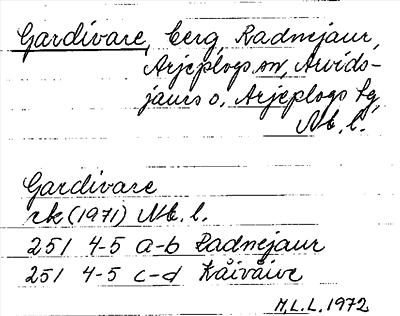 Gardivare, berg, Radnejaur,
Arjeplogs sn, Arvids-
jaurs o. Arjeplogs tg,
Nb. l.
Gardivare
rk (1971) Nb. l.
251 4-5 a-b Radnejaur
251 4-5 c-d Kåivåive
M.L.L. 1972